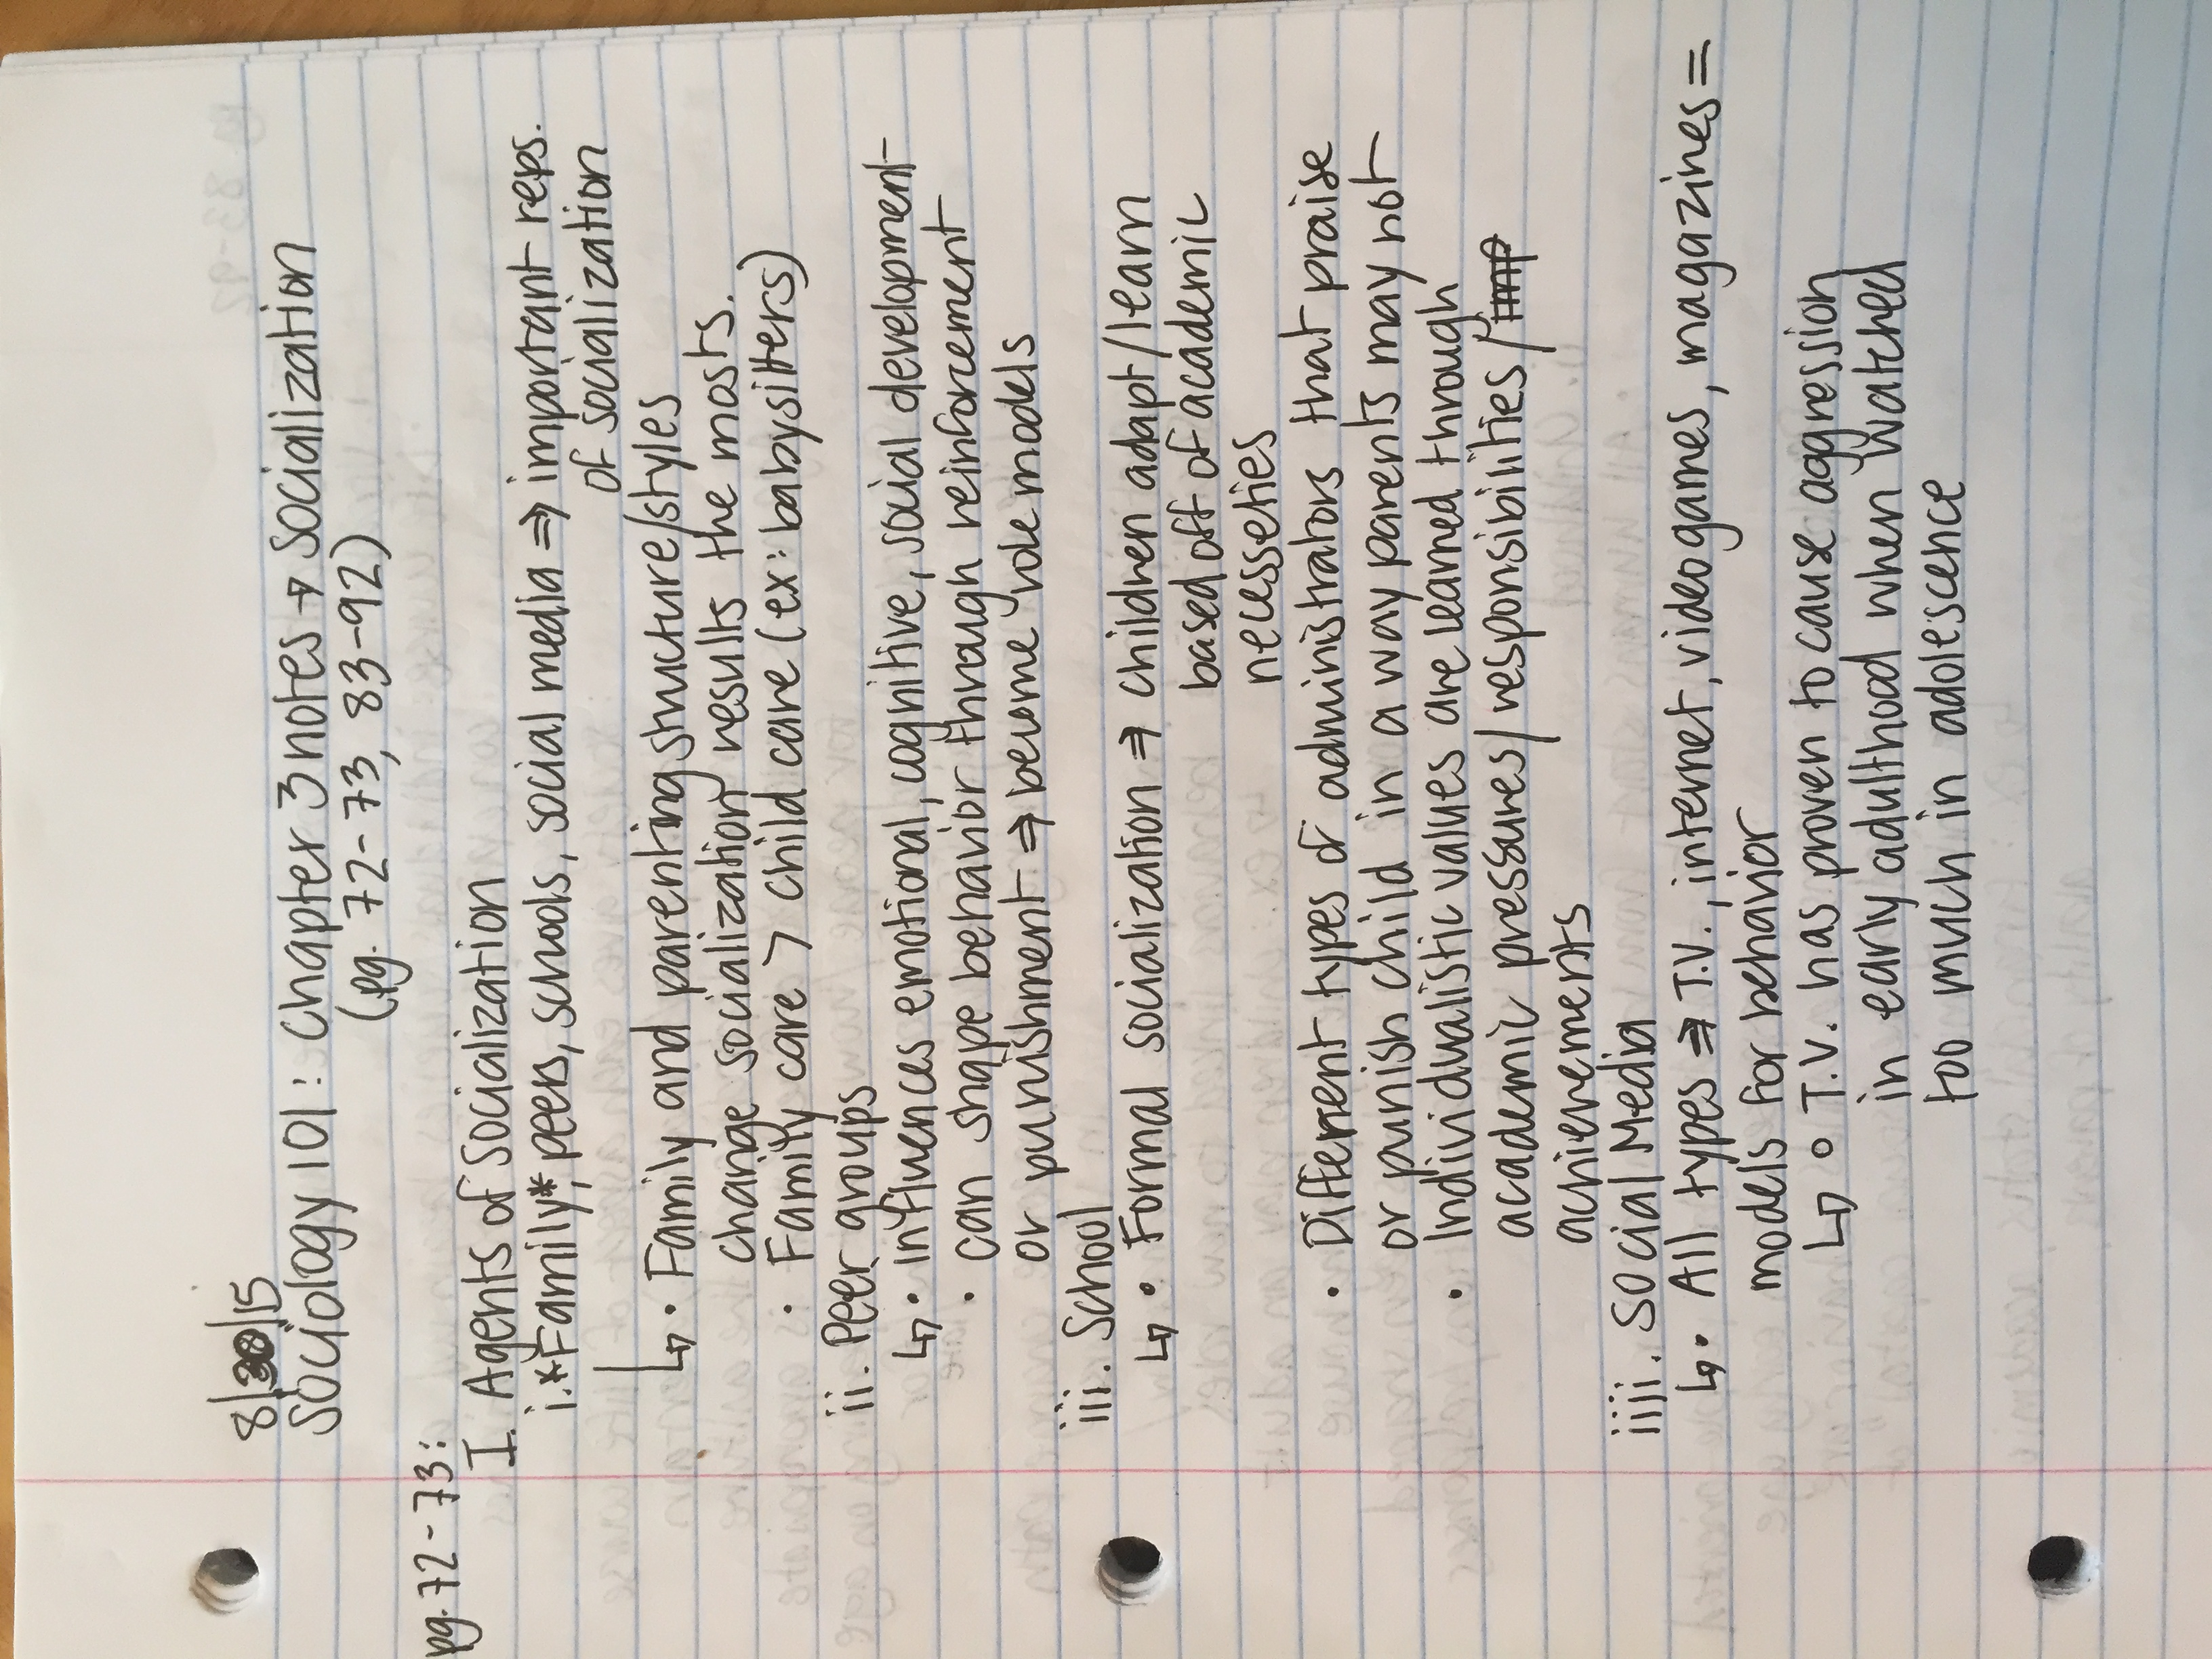 8/30/15
Sociology 101: Chapter 3 notes → Socialization
(pg. 72-73, 83-92)
pg. 72-73:
I. Agents of Socialization
i. *Family*, peers, schools, social media ⇒ important reps.
of socialization
↳ • Family and parenting structure/styles
change socialization results the most.
• Family care > child care (ex: babysitters)
ii. Peer groups
↳ • influences emotional, cognitive, social development
• can shape behavior through reinforcement
or punishment ⇒ become role models
iii. School
↳ • Formal socialization ⇒ children adapt/learn
based off of academic
necesseties
• Different types of administrators that praise
or punish child in a way parents may not
• Individualistic values are learned through
academic pressures/responsibilities/
achievements
iiii. Social Media
↳ • All types ⇒ T.V., internet, videogames, magazines =
models for behavior
↳ ○ T.V. has proven to cause aggression
in early adulthood when watched
too much in adolescence